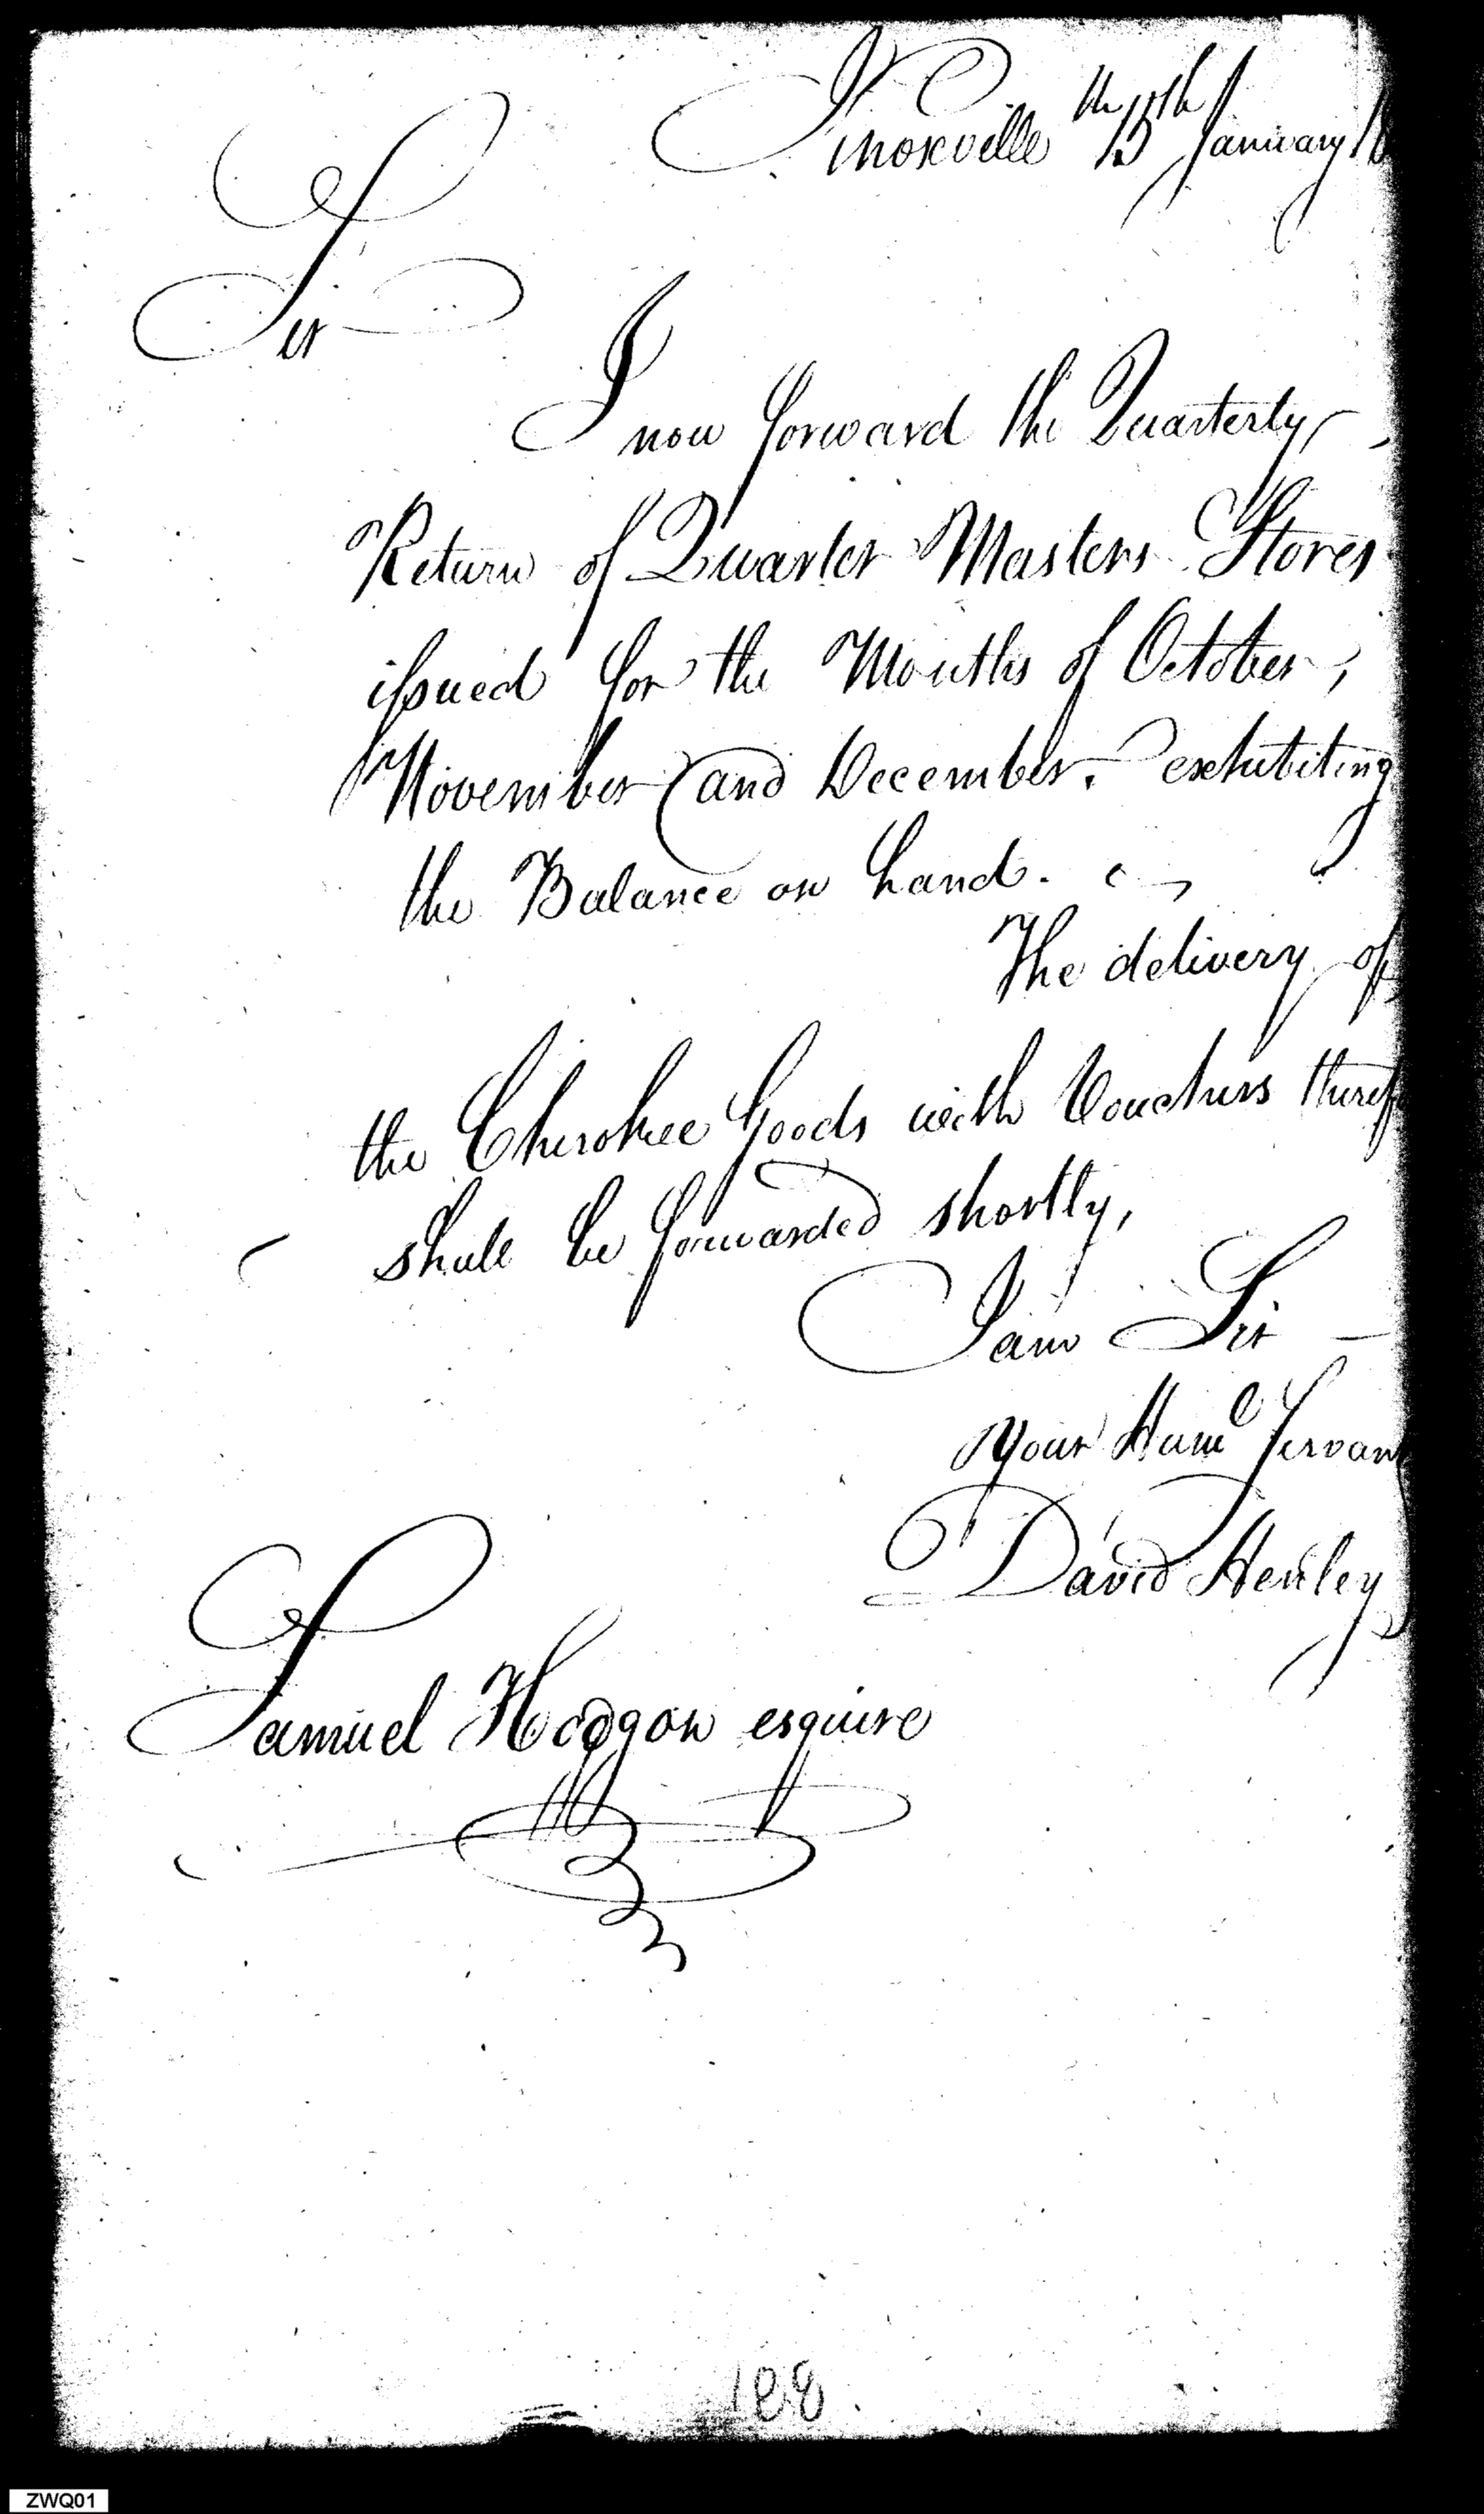 Knoxville the 15th January 18
Sir
I now forward the Quarterly
Return of Quarter Masters Stores
issued for the Months of October,
November and December. exhibiting
the Balance on hand.
The delivery of
the Cherokee Goods with Vouchers there
shall be forwarded shortly,
I am Sir
Your Hume Servan
David Henley
Samuel Hodgon esquire
188
ZWQ01